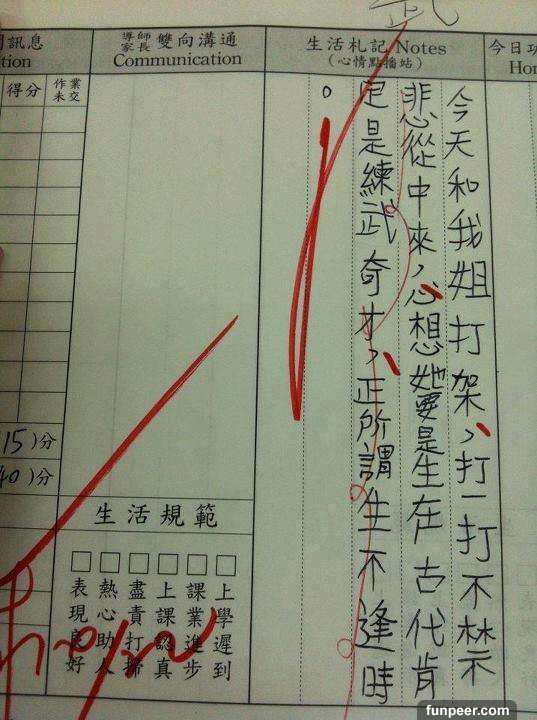 武
訊息
tion
導師
家長 雙向溝通
Communication
生活札記 Notes
(心情點播站)
今日
Hor
得分
作業
未交
今天和我姐打架，打一打不禁
悲從中來，心想她要是生在古代肯
定是練武奇才，正所謂生不逢時
。
15)分
40)分
生活規範
上學遲到
課業進步
上課認真
盡責打掃
熱心助人
表現良好
funpeer.com